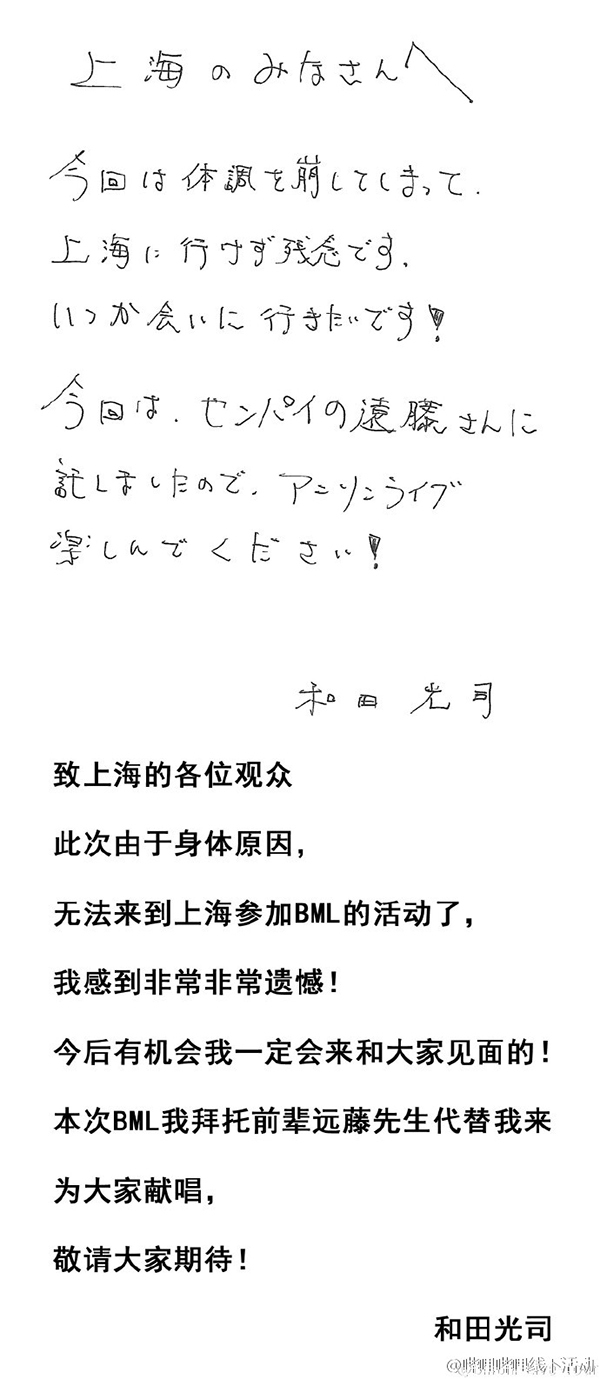 上海のみなさんへ
今回は体調を崩してしまって、
上海に行けず残念です、
いつか会いに行きたいです!
今回は、センパイの遠藤さんに
託しましたので、アニソンライブ
楽しんでください!
和田光司
致上海的各位观众
此次由于身体原因，
无法来到上海参加BML的活动了，
我感到非常非常遗憾！
今后有机会我一定会来和大家见面的！
本次BML我拜托前辈远藤先生代替我来
为大家献唱，
敬请大家期待！
和田光司
@哔哩哔哩线下活动